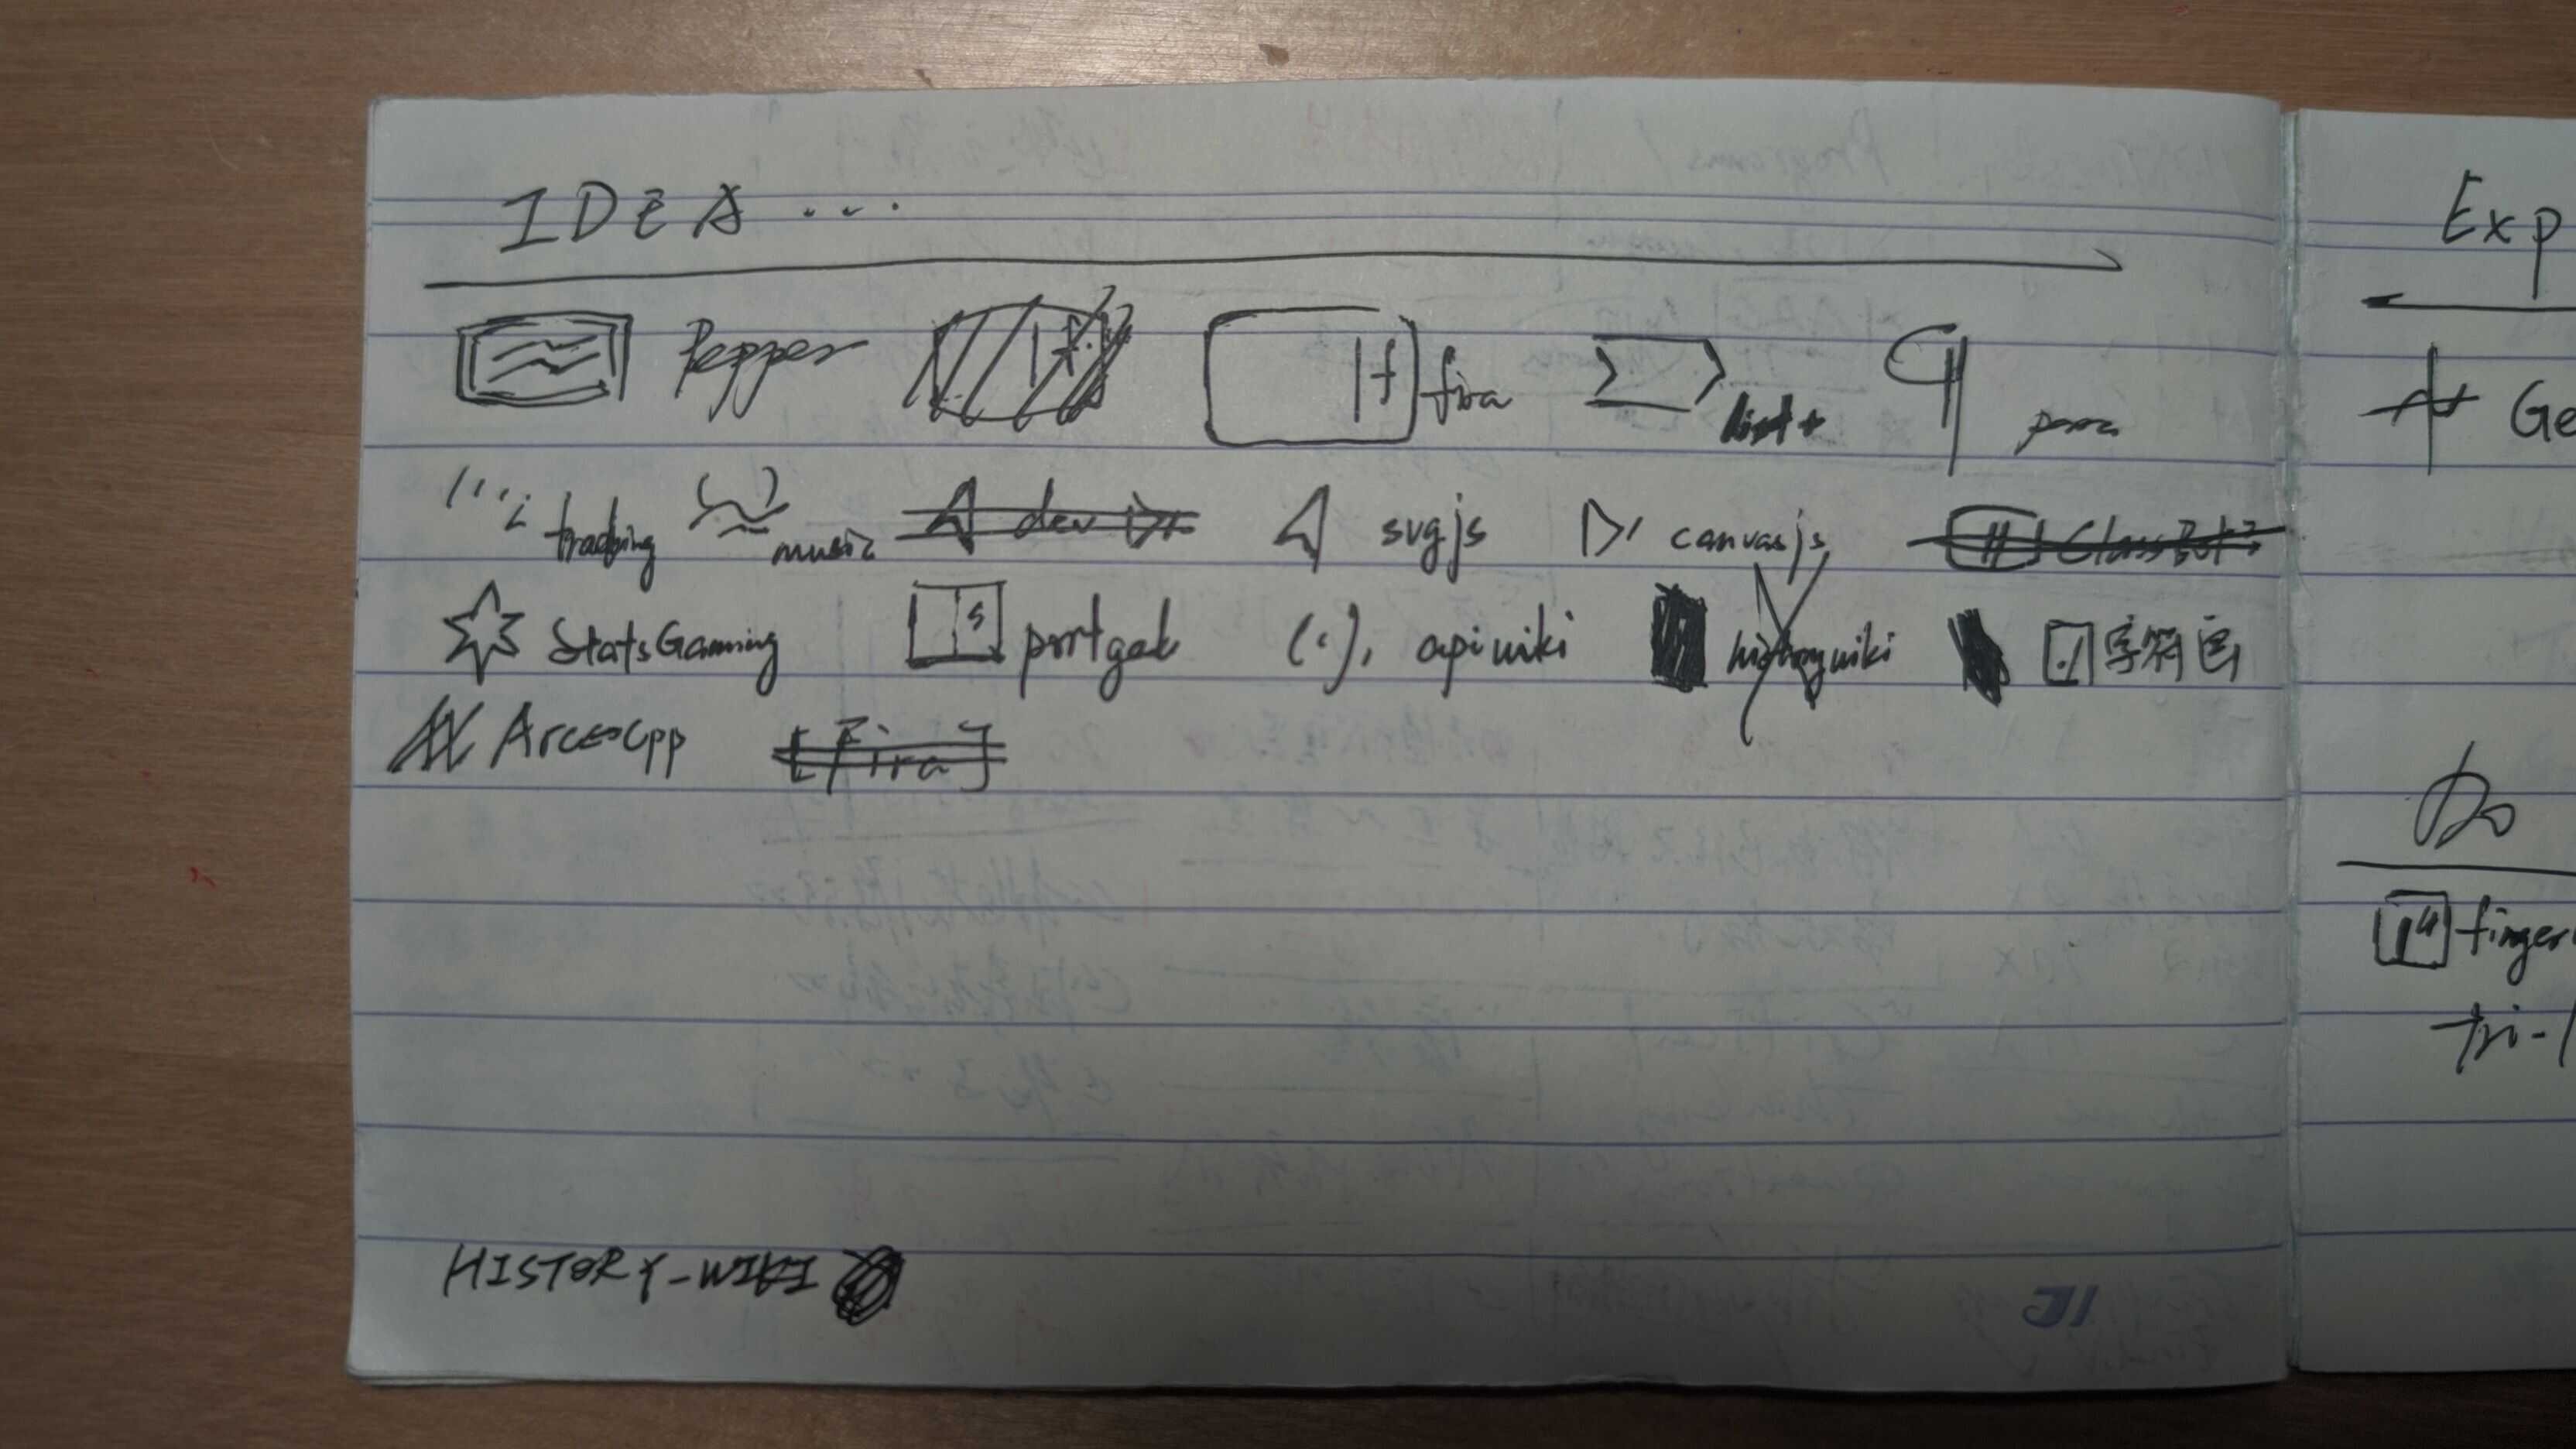 IDEA ...
Pepper |f fira list+ ¶ para
trading music dev svgjs canvasjs ClassBot
StatsGaming S apiwiki historywiki 字符画
[Fira]
HISTORY-WIKI
Exp
Ge
Do
finger
tri-